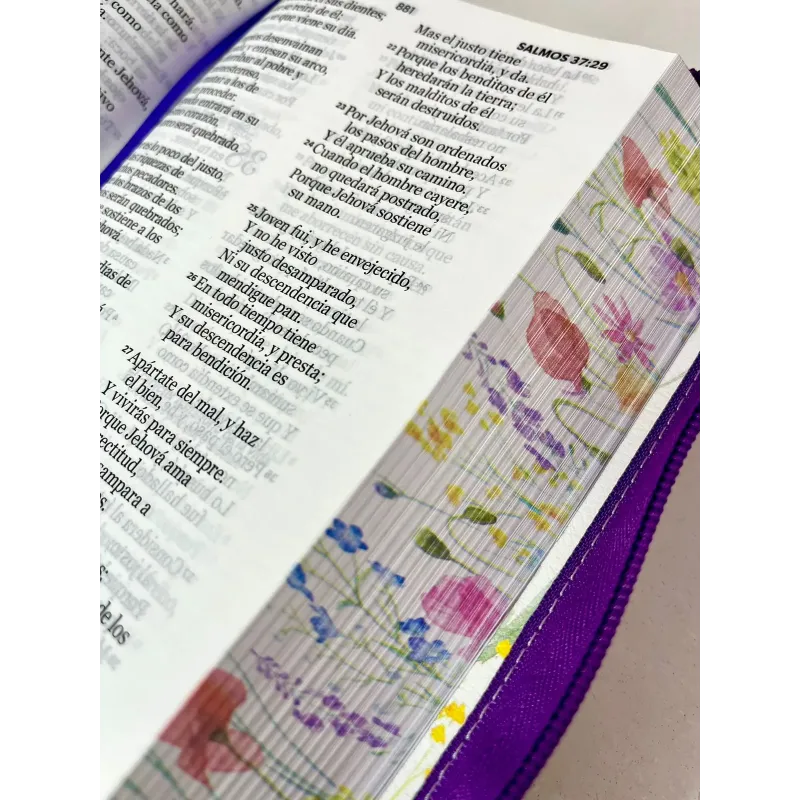 hará,
como
ía como
a.
nte Jehová,
tivo
s dientes;
reirá de él;
que viene su día.
desenvainan
y entesan su arco,
ar al pobre y
nesteroso,
atar a los de
proceder.
entrará en su
corazón,
será quebrado.
lo poco del justo.
riquezas de
pecadores.
los brazos de los
serán quebrados;
sostiene a los
Jehová.
días de
881
SALMOS 37:29
Mas el justo tiene
misericordia, y da.
22 Porque los benditos de él
heredarán la tierra;
Y los malditos de él
serán destruidos.
23 Por Jehová son ordenados
los pasos del hombre,
Y él aprueba su camino.
24 Cuando el hombre cayere,
no quedará postrado,
Porque Jehová sostiene
su mano.
25 Joven fui, y he envejecido,
Y no he visto
justo desamparado,
Ni su descendencia que
mendigue pan.
26 En todo tiempo tiene
misericordia, y presta;
Y su descendencia es
para bendición.
27 Apártate del mal, y haz
el bien,
Y vivirás para siempre.
orque Jehová ama
rectitud,
campara a
s.
s;
de los